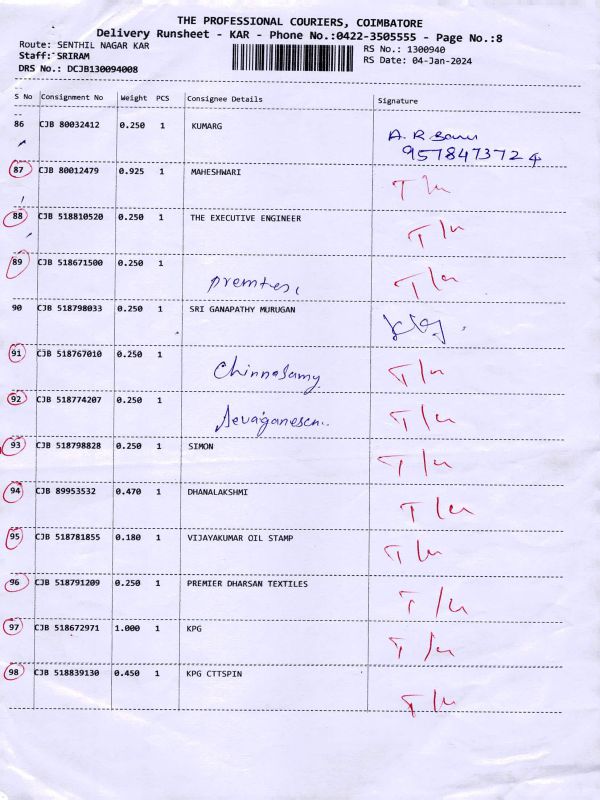 THE PROFESSIONAL COURIERS, COIMBATORE
Delivery Runsheet - KAR - Phone No.:0422-3505555 - Page No.:8
Route: SENTHIL NAGAR KAR RS No.: 1300940
Staff: SRIRAM RS Date: 04-Jan-2024
DRS No.: DCJB130094008
S No Consignment No Weight PCS Consignee Details Signature
86 CJB 80032412 0.250 1 KUMARG
9578473724
87 CJB 80012479 0.925 1 MAHESHWARI T/n
88 CJB 518810520 0.250 1 THE EXECUTIVE ENGINEER T/n
89 CJB 518671500 0.250 1 T/n
90 CJB 518798033 0.250 1 SRI GANAPATHY MURUGAN
91 CJB 518767010 0.250 1 Chinnasamy T/n
92 CJB 518774207 0.250 1 T/n
93 CJB 518798828 0.250 1 SIMON T/n
94 CJB 89953532 0.470 1 DHANALAKSHMI T/n
95 CJB 518781855 0.180 1 VIJAYAKUMAR OIL STAMP T/n
96 CJB 518791209 0.250 1 PREMIER DHARSAN TEXTILES T/n
97 CJB 518672971 1.000 1 KPG T/n
98 CJB 518839130 0.450 1 KPG CTTSPIN T/n